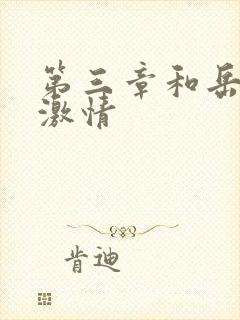 第三章和岳
激情
肯迪